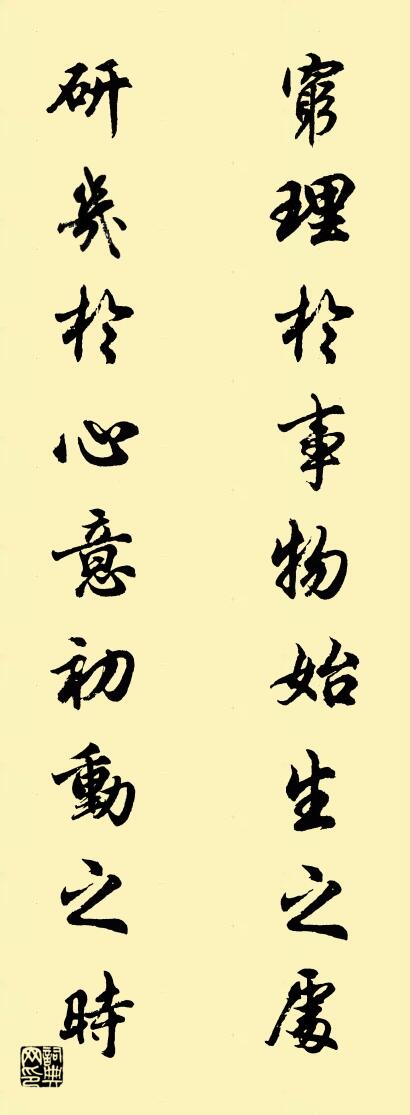 窮理於事物始生之處
研幾於心意初動之時
詞典网印